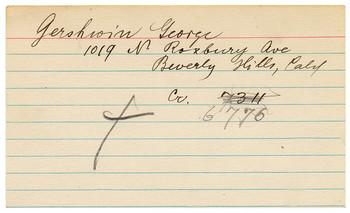 Gershwin George
1019 N Roxbury Ave
Beverly Hills, Calif
Cr. 7311
6776